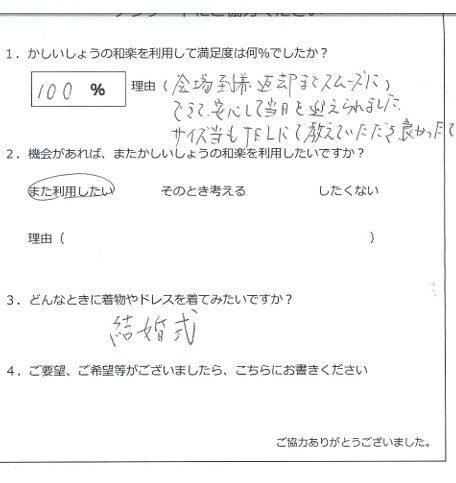 アンケートにご協力ください
1．かしいしょうの和楽を利用して満足度は何％でしたか？
100 ％ 理由（会場到着、返却までスムーズに）
できて、安心して当日を迎えられました。
サイズ当もTELにて教えていただき良かったで
2．機会があれば、またかしいしょうの和楽を利用したいですか？
また利用したい そのとき考える したくない
理由（ ）
3．どんなときに着物やドレスを着てみたいですか？
結婚式
4．ご要望、ご希望等がございましたら、こちらにお書きください
ご協力ありがとうございました。